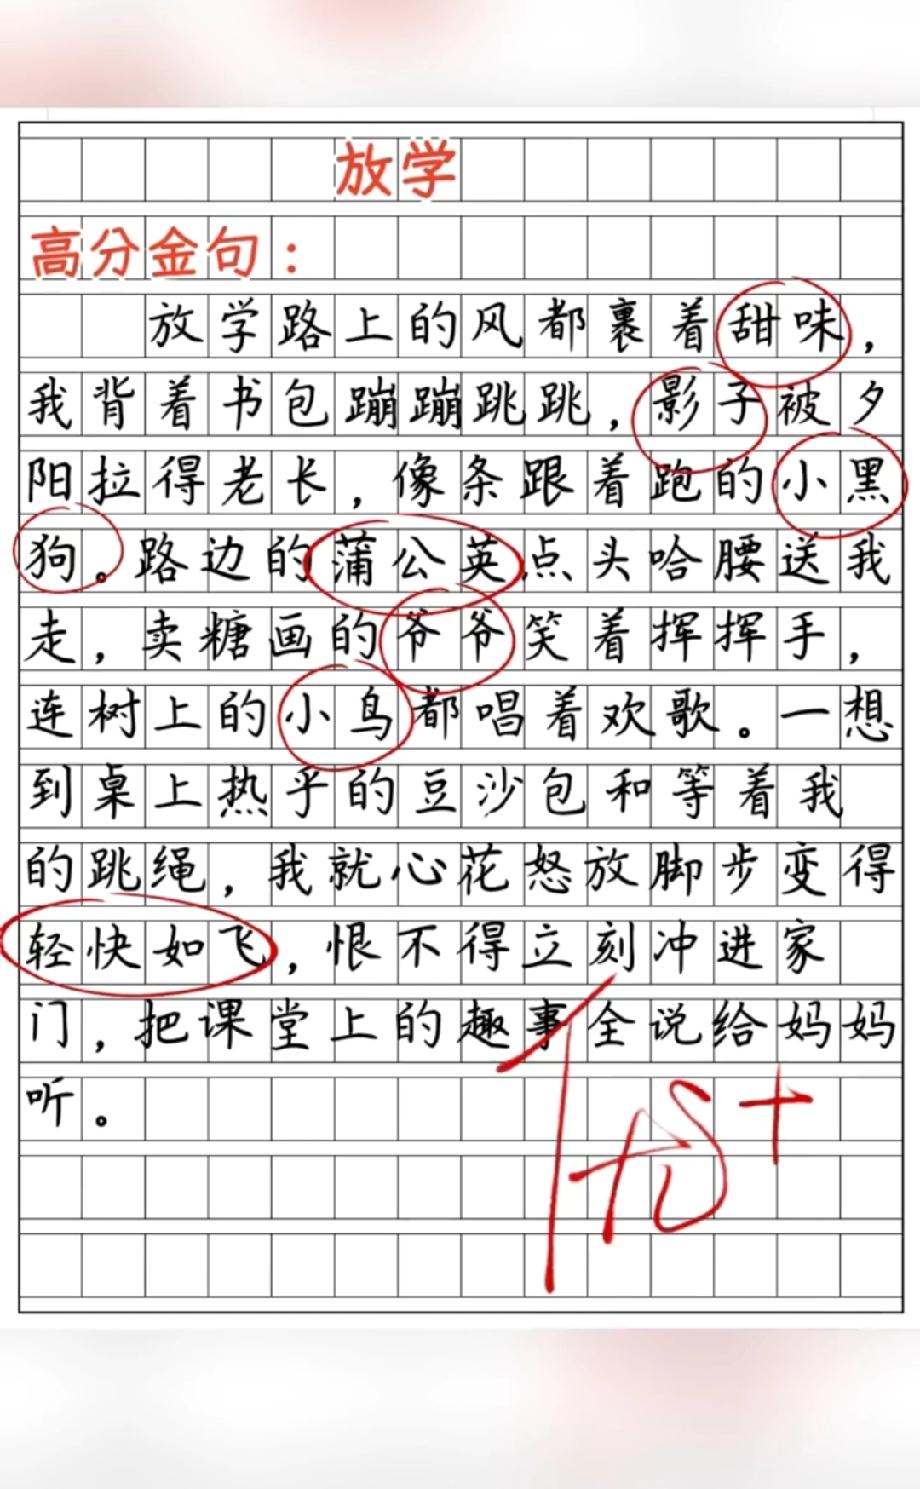 放学
高分金句：
放学路上的风都裹着甜味，
我背着书包蹦蹦跳跳，影子被夕
阳拉得老长，像条跟着跑的小黑
狗。路边的蒲公英点头哈腰送我
走，卖糖画的爷爷笑着挥挥手，
连树上的小鸟都唱着欢歌。一想
到桌上热乎的豆沙包和等着我
的跳绳，我就心花怒放脚步变得
轻快如飞，恨不得立刻冲进家
门，把课堂上的趣事全说给妈妈
听。
优+